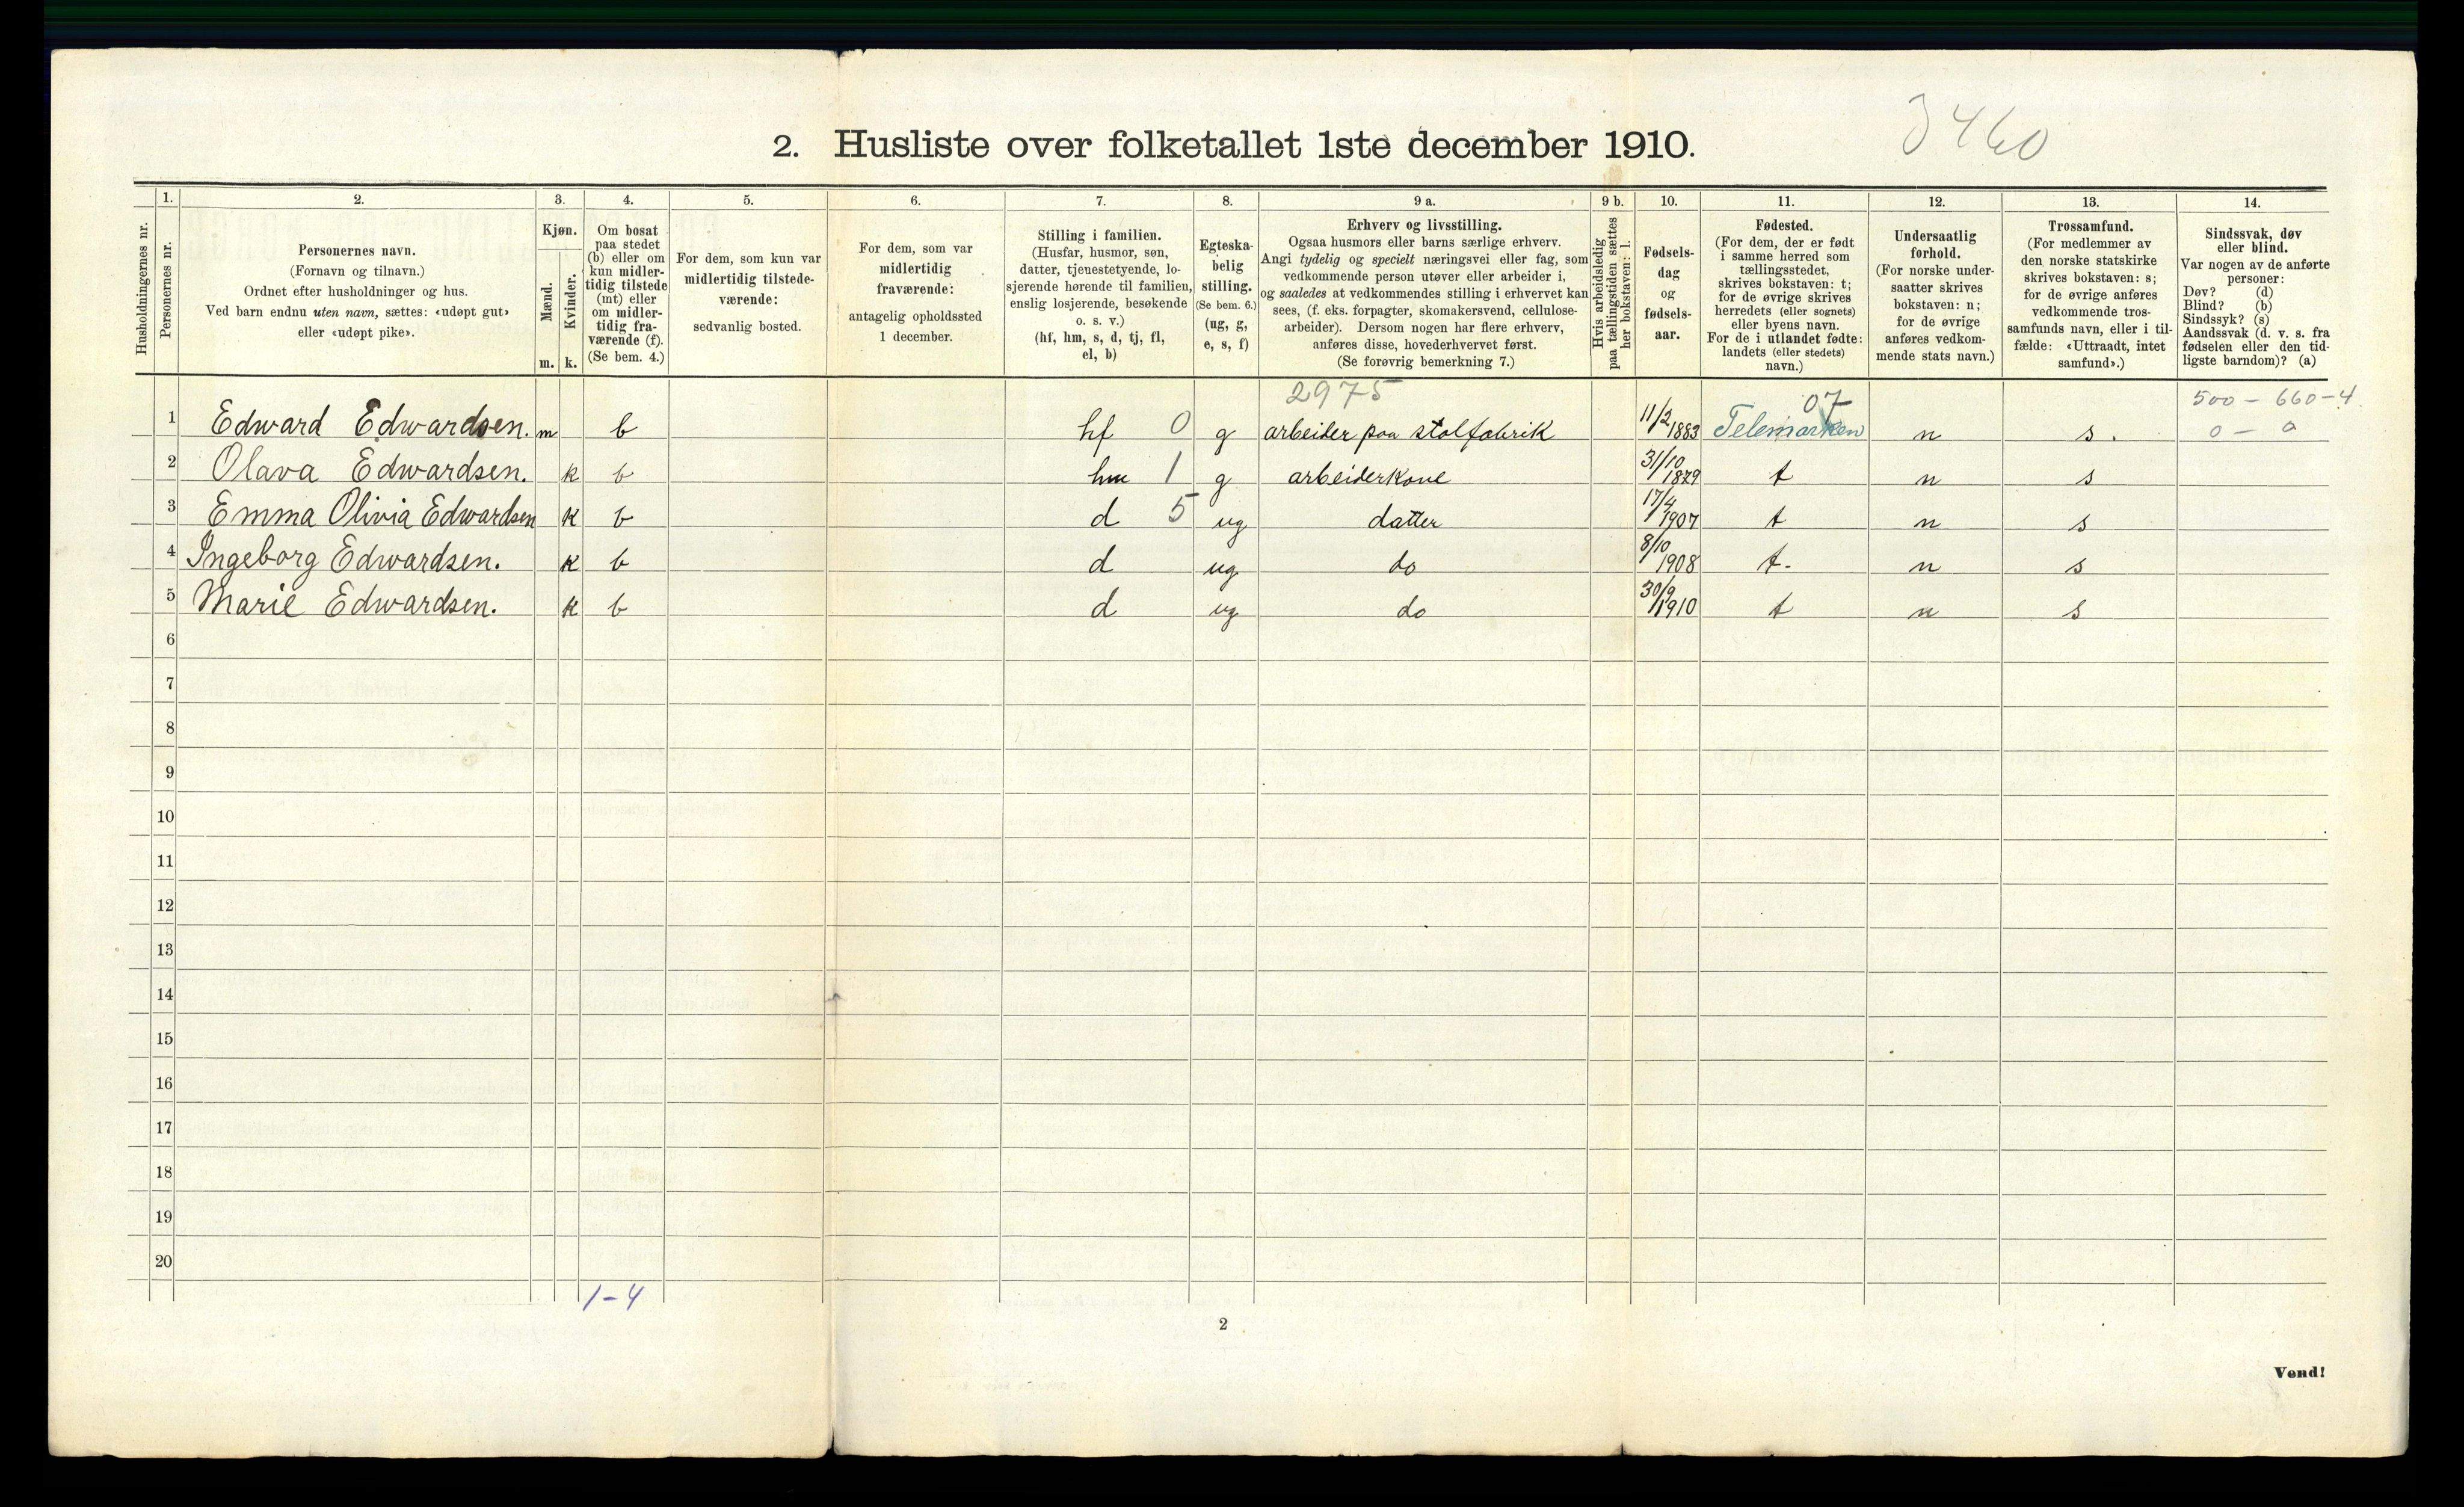 3460
2. Husliste over folketallet 1ste december 1910.
Husholdningernes nr.
1.
Personernes nr.
2.
Personernes navn.
(Fornavn og tilnavn.)
Ordnet efter husholdninger og hus.
Ved barn endnu uten navn, sættes: «udøpt gut»
eller «udøpt pike».
3.
Kjøn.
Mænd.
m.
Kvinder.
k.
4.
Om bosat
paa stedet
(b) eller om
kun midler-
tidig tilstede
(mt) eller
om midler-
tidig fra-
værende (f).
(Se bem. 4.)
5.
For dem, som kun var
midlertidig tilstede-
værende:
sedvanlig bosted.
6.
For dem, som var
midlertidig
fraværende:
antagelig opholdssted
1 december.
7.
Stilling i familien.
(Husfar, husmor, søn,
datter, tjenestetyende, lo-
sjerende hørende til familien,
enslig losjerende, besøkende
o. s. v.)
(hf, hm, s, d, tj, fl,
el, b)
8.
Egteska-
belig
stilling.
(Se bem. 6.)
(ug, g,
e, s, f)
9 a.
Erhverv og livsstilling.
Ogsaa husmors eller barns særlige erhverv.
Angi tydelig og specielt næringsvei eller fag, som
vedkommende person utøver eller arbeider i,
og saaledes at vedkommendes stilling i erhvervet kan
sees, (f. eks. forpagter, skomakersvend, cellulose-
arbeider). Dersom nogen har flere erhverv,
anføres disse, hovederhvervet først.
(Se forøvrig bemerkning 7.)
9 b.
Hvis arbeidsledig
paa tællingstiden sættes
her bokstaven: l.
10.
Fødsels-
dag
og
fødsels-
aar.
11.
Fødested.
(For dem, der er født
i samme herred som
tællingsstedet,
skrives bokstaven: t;
for de øvrige skrives
herredets (eller sognets)
eller byens navn.
For de i utlandet fødte:
landets (eller stedets)
navn.)
12.
Undersaatlig
forhold.
(For norske under-
saatter skrives
bokstaven: n;
for de øvrige
anføres vedkom-
mende stats navn.)
13.
Trossamfund.
(For medlemmer av
den norske statskirke
skrives bokstaven: s;
for de øvrige anføres
vedkommende tros-
samfunds navn, eller i til-
fælde: «Uttraadt, intet
samfund».)
14.
Sindssvak, døv
eller blind.
Var nogen av de anførte
personer:
Døv? (d)
Blind? (b)
Sindssyk? (s)
Aandssvak (d. v. s. fra
fødselen eller den tid-
ligste barndom)? (a)
2975 07 500 – 660 – 4
1 Edward Edwardsen. m b hf 0 g arbeider paa stolfabrik 11/2 1883 Telemarken n s. 0 – 0
2 Olava Edwardsen. k b hm 1 g arbeiderkone 31/10 1879 t n s
3 Emma Olivia Edwardsen k b d 5 ug datter 17/4 1907 t n s
4 Ingeborg Edwardsen. k b d ug do 8/10 1908 t- n s
5 Marie Edwardsen. k b d ug do 30/9 1910 t n s
6
7
8
9
10
11
12
13
14
15
16
17
18
19
20
1-4
2
Vend!